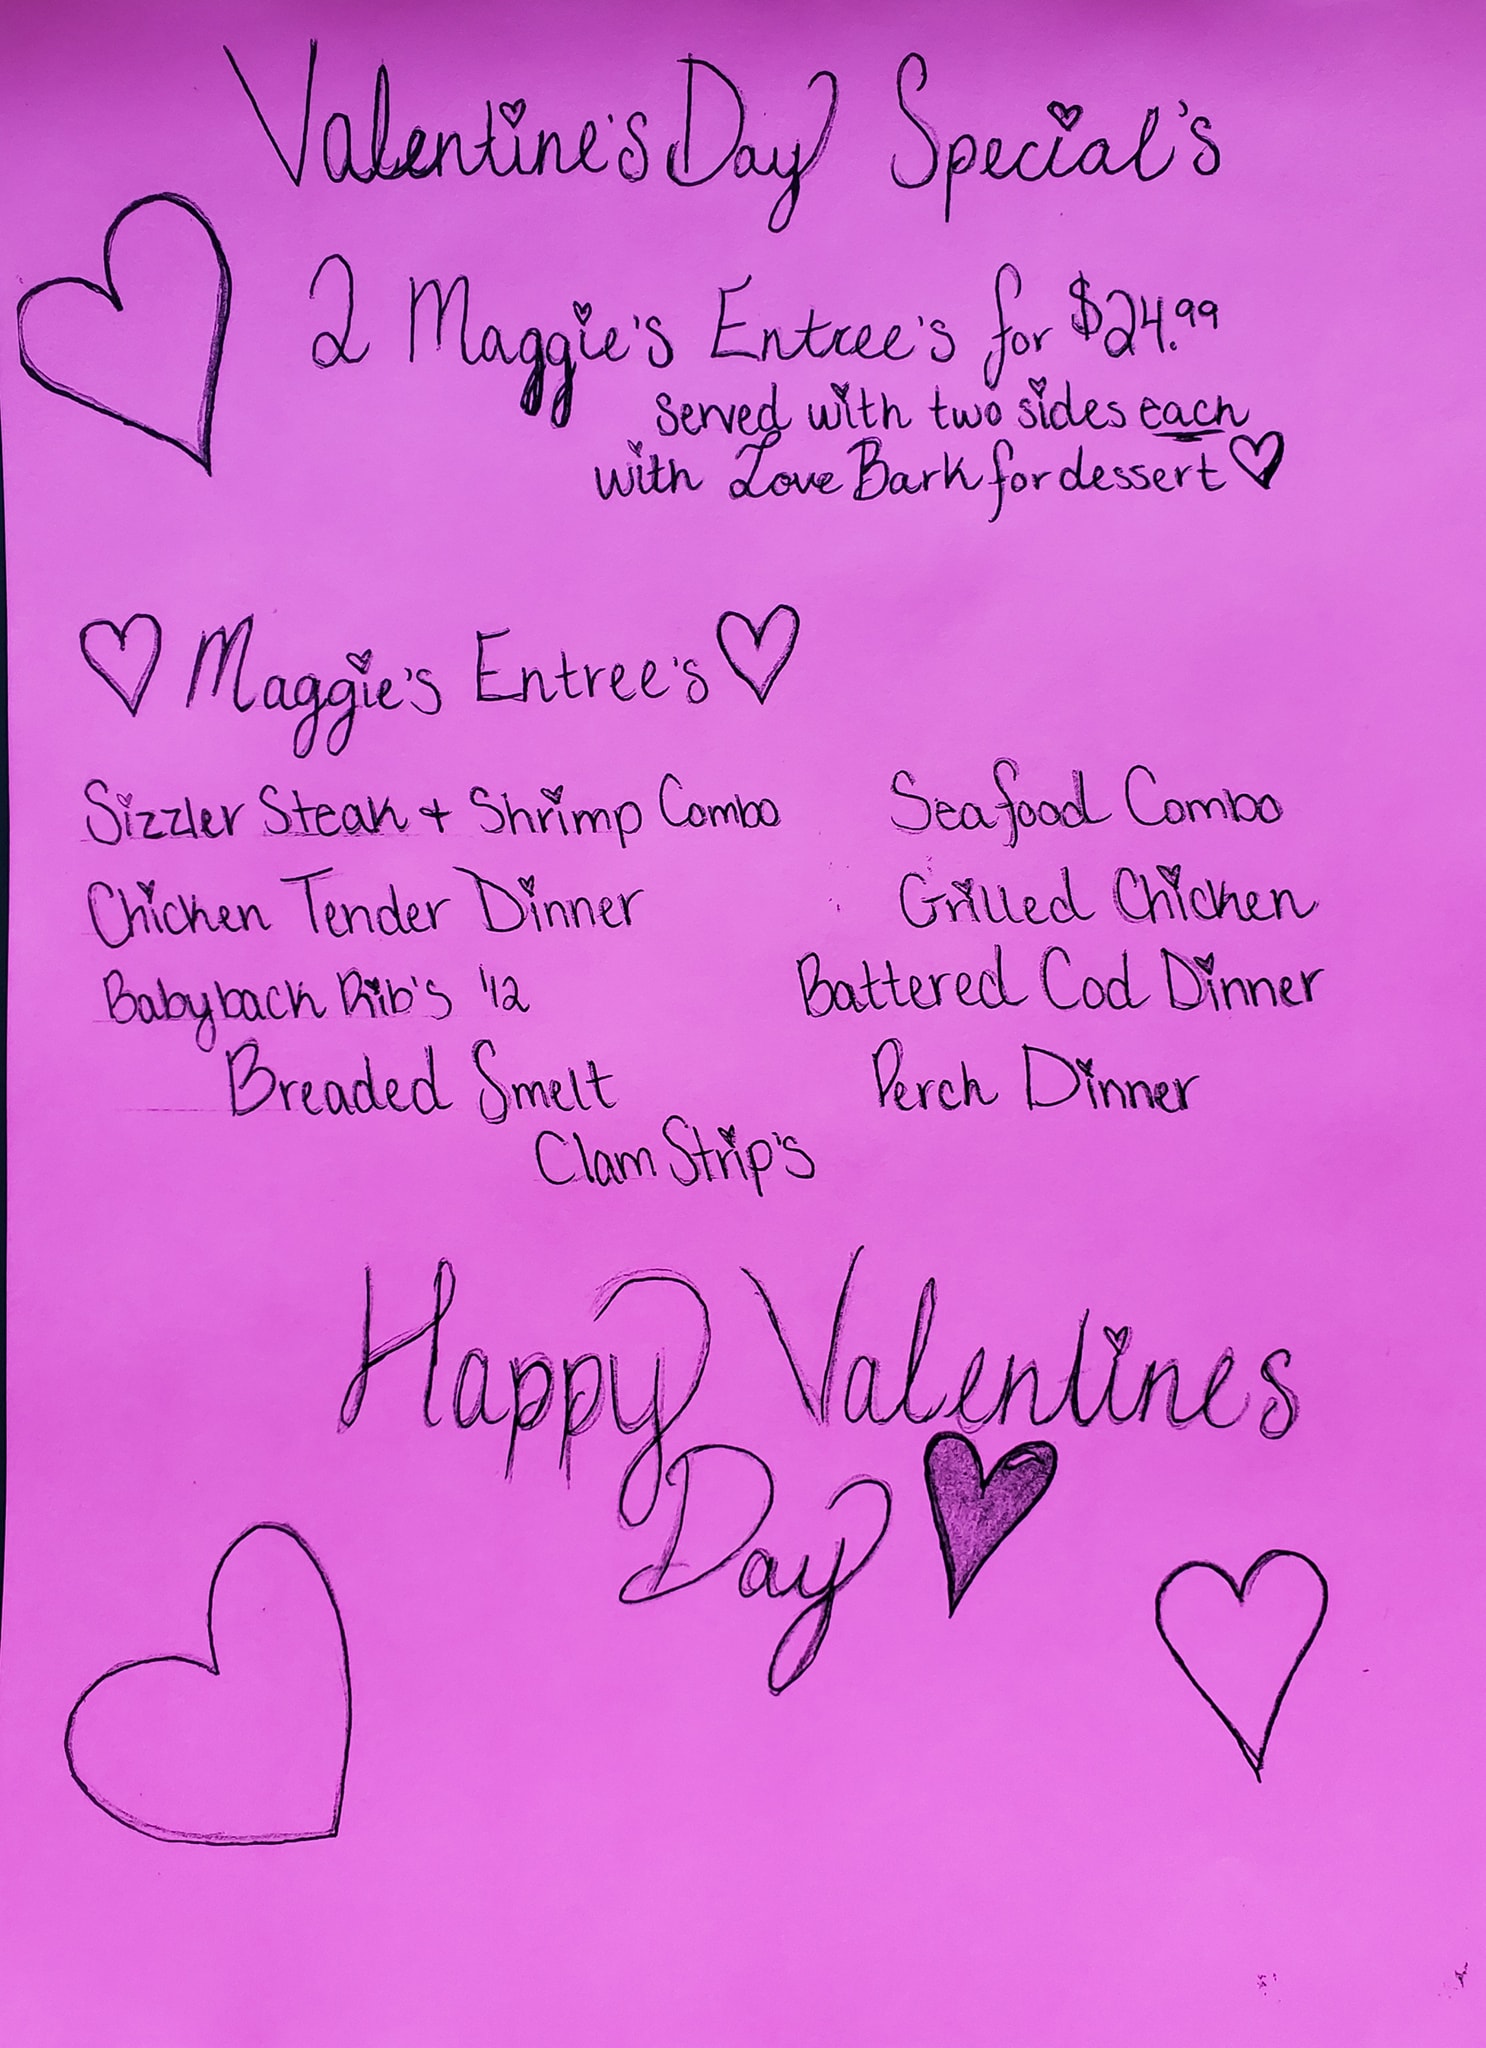 Valentine's Day Special's
2 Maggie's Entree's for $24.99
served with two sides each
with Love Bark for dessert
Maggie's Entree's
Sizzler Steak + Shrimp Combo
Seafood Combo
Chicken Tender Dinner
Grilled Chicken
Babyback Rib's 1/2
Battered Cod Dinner
Breaded Smelt
Perch Dinner
Clam Strip's
Happy Valentines
Day